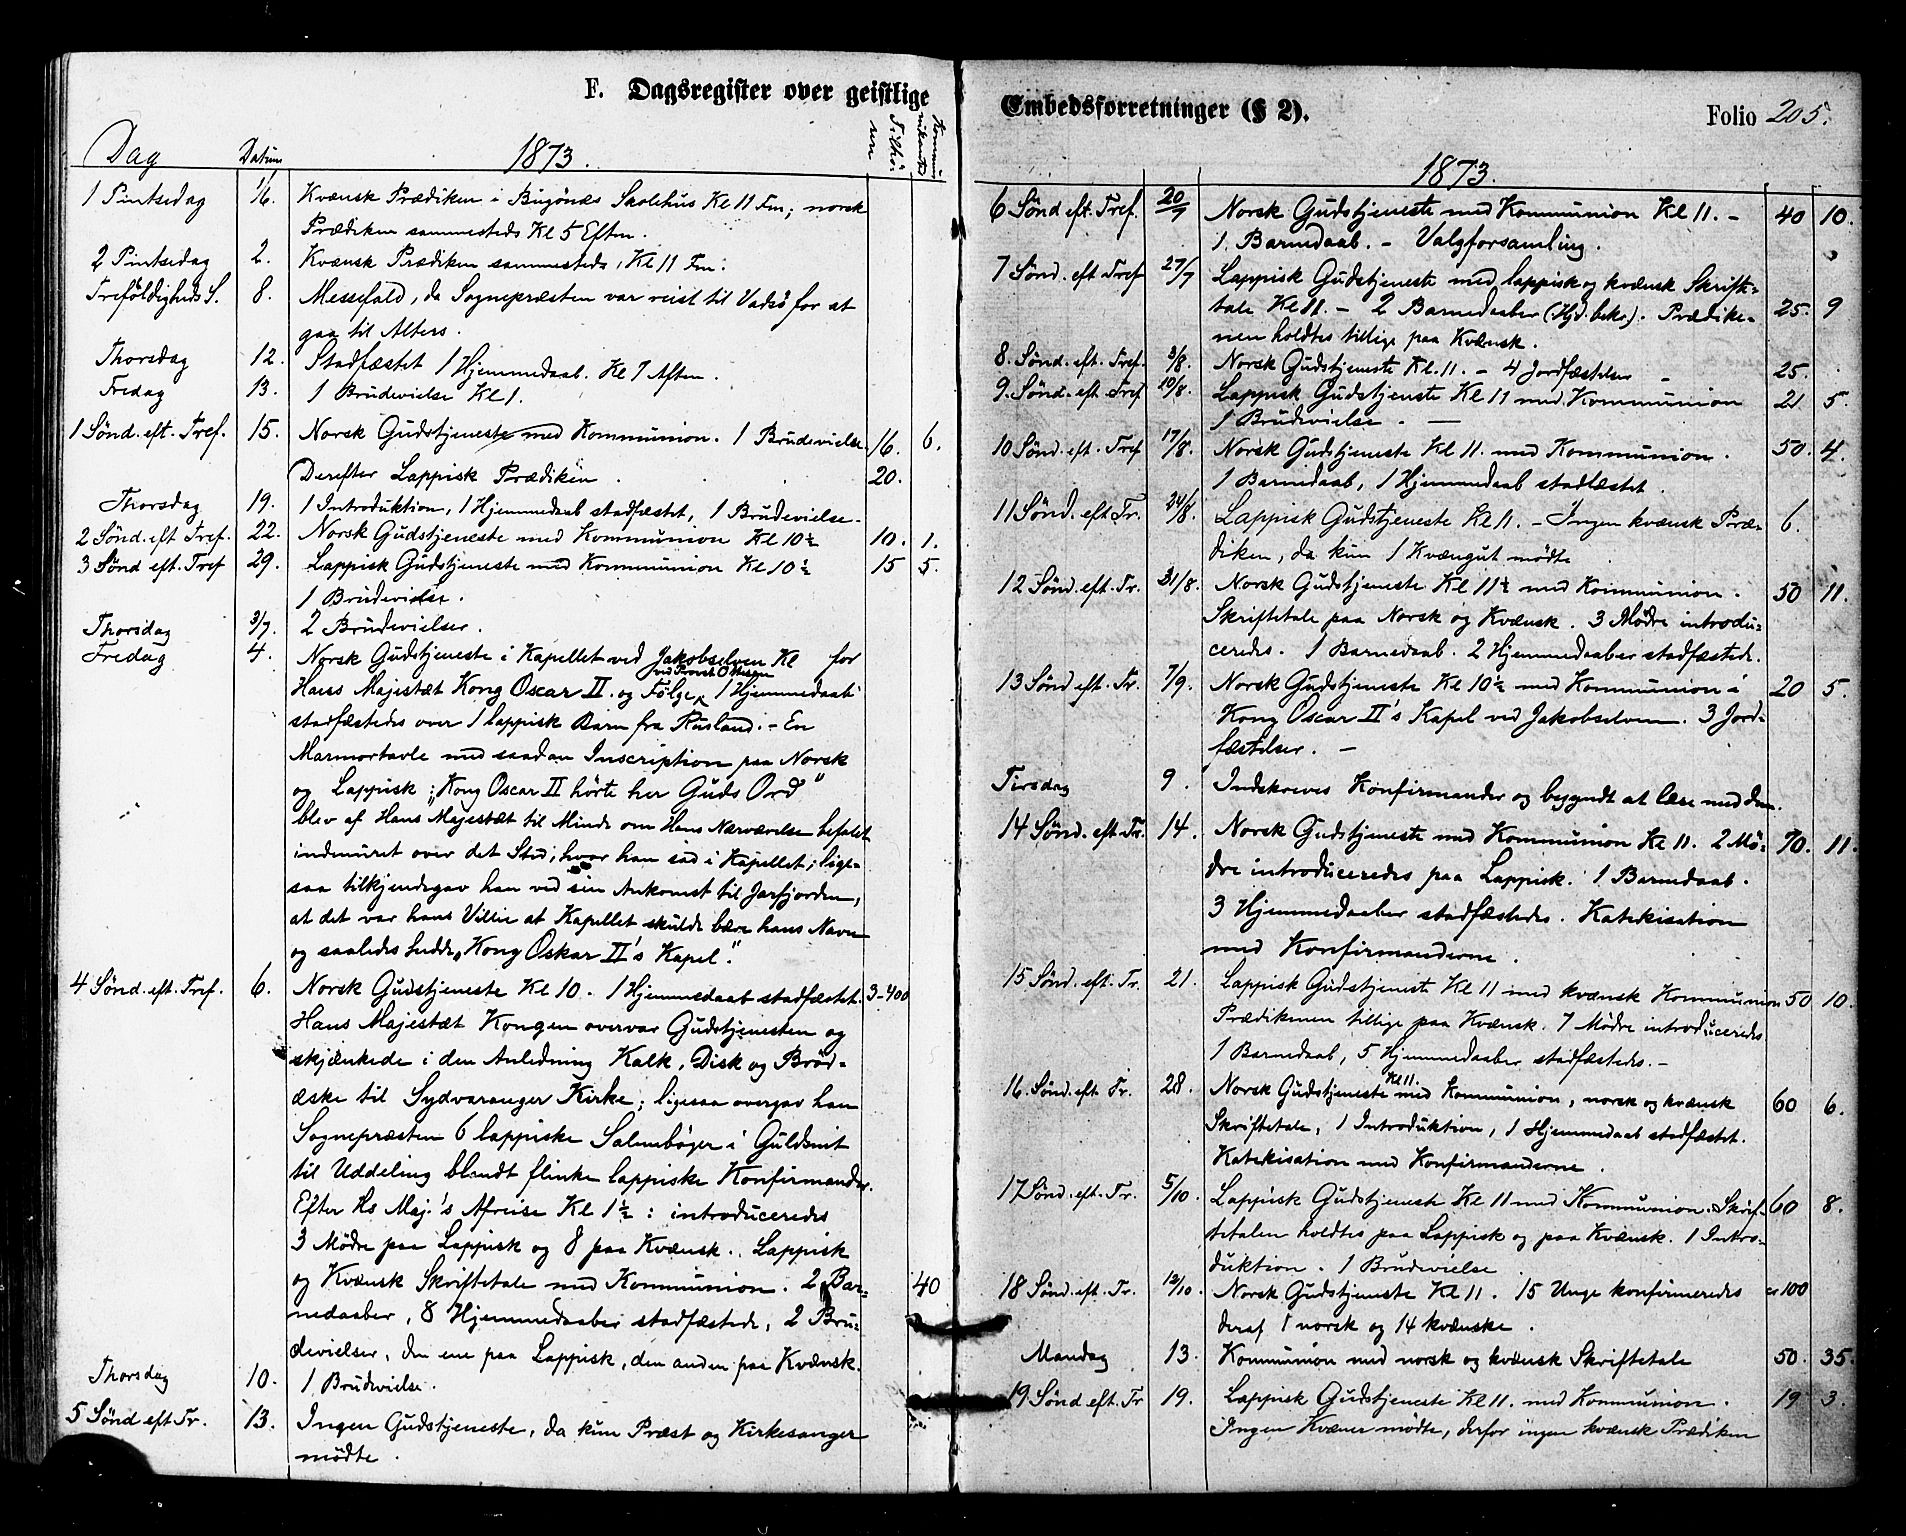 F. Dagsregister over geistlige
Dag Datum 1873. Tilhö-rere Kommunikanter
1 Pintsedag 1/6. Kvænsk Prædiken i Bugönæs Skolehus Kl 11 Fm; norsk
Prædiken sammesteds Kl 5 Eftm.
2 Pintsedag 2. Kvænsk Prædiken sammesteds, Kl 11 Fm.
Treföldigheds S. 8. Messefald, da Sognepræsten var reist til Vadsö for at
gaa til Alters.
Thorsdag 12. Stadfæstet 1 Hjemmedaab. Kl 7 Aften.
Fredag 13. 1 Brudevielse Kl 1.
1 Sönd. eft. Tref. 15. Norsk Gudstjeneste med Kommunion. 1 Brudevielse 16. 6.
Derefter Lappisk Prædiken . 20.
Thorsdag 19. 1 Introduktion, 1 Hjemmedaab stadfæstet, 1 Brudevielse.
2 Sönd. eft Tref. 22. Norsk Gudstjeneste med Kommunion Kl 10½ 10. 1.
3 Sönd eft. Tref 29. Lappisk Gudstjeneste med Kommunion Kl 10½ 15 5.
1 Brudevielse.
Thorsdag 3/7. 2 Brudevielser.
Fredag 4. Norsk Gudstjeneste i Kapellet ved Jakobselven Kl for
ved Provst Ottesen
Hans Majestæt Kong Oscar II. og Fölge, 1 Hjemmedaab
stadfæstedes over 1 lappisk Barn fra Rusland. – En
Marmortavle med saadan Inscription paa Norsk
og Lappisk: „Kong Oscar II hörte her Guds Ord”
blev af Hans Majestæt til Minde om Hans Nærværelse befalet
indmuret over det Sted, hvor han sad i Kapellet; lige-
saa tilkjendegav han ved sin Ankomst til Jarfjorden,
at det var hans Villie at Kapellet skulde bære hans Navn
og saaledes hedde „Kong Oskar II's Kapel”.
4 Sönd. eft. Tref. 6. Norsk Gudstjeneste Kl 10. 1 Hjemmedaab stadfæstet. 3-400
Hans Majestæt Kongen overvar Gudstjenesten og
skjænkede i den Anledning Kalk, Disk og Bröd-
æske til Sydvaranger Kirke; ligesaa overgav han
Sognepræsten 6 lappiske Salmebøger i Guldsnit
til Uddeling blandt flinke lappiske Konfirmander.
Efter Hs Maj.'s Afreise Kl 1½: introduceredes
3 Mødre paa Lappisk og 8 paa Kvænsk. Lappisk
og Kvænsk Skriftetale med Kommunion. 2 Bar- 40
nedaaber, 8 Hjemmedaaber stadfæstede, 2 Bru-
devielser, den ene paa Lappisk, den anden paa Kvænsk.
Thorsdag 10. 1 Brudevielse.
5 Sönd eft Tr. 13. Ingen Gudstjeneste, da kun Præst og Kirkesanger
mödte.
Embedsforretninger (§ 2). Folio 205.
1873.
6 Sönd eft. Tref. 20/7 Norsk Gudstjeneste med Kommunion Kl 11. – 40 10.
1 Barnedaab. – Valgforsamling.
7 Sönd. eft Tref 27/7 Lappisk Gudstjeneste med lappisk og kvænsk Skrifte-
tale Kl 11. – 2 Barnedaaber (Hjd. bekr.). Prædike- 25. 9
nen holdtes tillige paa Kvænsk.
8. Sönd. eft. Tref. 3/8. Norsk Gudstjeneste Kl. 11. – 4 Jordfæstelser – 25.
9. Sönd. eft. Tref 10/8. Lappisk Gudstjenste Kl 11 med Kommunion 21. 5.
1 Brudevielse. —
10 Sönd. eft. Tref 17/8. Norsk Gudstjeneste Kl 11. med Kommunion. 50. 4.
1 Barnedaab, 1 Hjemmedaab stadfæstet.
11 Sönd. eft. Tr. 24/8. Lappisk Gudstjeneste Kl 11. – Ingen kvænsk Præ- 6.
diken, da kun 1 Kvængut mödte.
12 Sönd. eft. Tr. 31/8. Norsk Gudstjeneste Kl 11½ med Kommunion. 50 11.
Skriftetale paa Norsk og Kvænsk. 3 Mødre introdu-
ceredes. 1 Barnedaab. 2 Hjemmedaaber stadfæstede.
13 Sönd eft. Tr. 7/9. Norsk Gudstjeneste Kl 10½ med Kommunion i 20 5.
Kong Oscar II's Kapel ved Jakobselven. 3 Jord-
fæstelser. –
Tirsdag 9. Indskreves Konfirmander og begyndt at læse med dem.
14 Sönd. eft. Tr. 14. Norsk Gudstjeneste med Kommunion Kl 11. 2 Mö- 70. 11.
dre introduceredes paa Lappisk. 1 Barnedaab.
3 Hjemmedaaber stadfæstedes. Katekisation
med Konfirmanderne.
15 Sönd. eft. Tr. 21. Lappisk Gudstjeneste Kl 11 med kvænsk Kommunion 50 10.
Prædikenen tillige paa Kvænsk. 7 Mødre introduceredes
1 Barnedaab, 5 Hjemmedaaber stadfæstedes. –
16 Sönd. eft Tr. 28. Norsk Gudstjeneste Kl 11. med Kommunion, norsk og kvænsk 60 6.
Skriftetale, 1 Introduktion, 1 Hjemmedaab stadfæstet.
Katekisation med Konfirmanderne.
17 Sönd. eft. Tr. 5/10. Lappisk Gudstjeneste Kl 11 med Kommunion. Skrif- 60 8.
tetalen holdtes paa Lappisk og paa Kvænsk. 1 Intro-
duktion. 1 Brudevielse
18 Sönd. eft. Tr. 12/10. Norsk Gudstjeneste Kl 11. 15 Unge konfirmeredes ca 100
deraf 1 norsk og 14 kvænske.
Mandag 13. Kommunion med norsk og kvænsk Skriftetale 50. 35.
19 Sönd eft. Tr 19. Lappisk Gudstjeneste Kl 11. med Kommunion. 19 3.
Ingen Kvæner mödte, derfor ingen kvænsk Prædiken